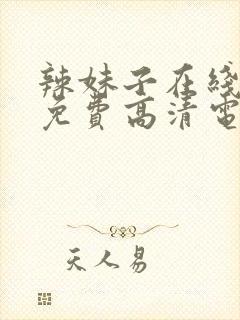 辣妹子在线
免费高清电
天人易